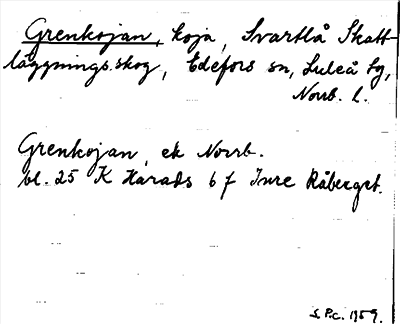 Grenkojan, koja, Svartlå Skatt-
läggningsskog, Edefors sn, Luleå tg,
Norrb. l.
Grenkojan, ek Norrb.
bl. 25 K Harads 6 f Inre Råberget.
S. P:c. 1959.